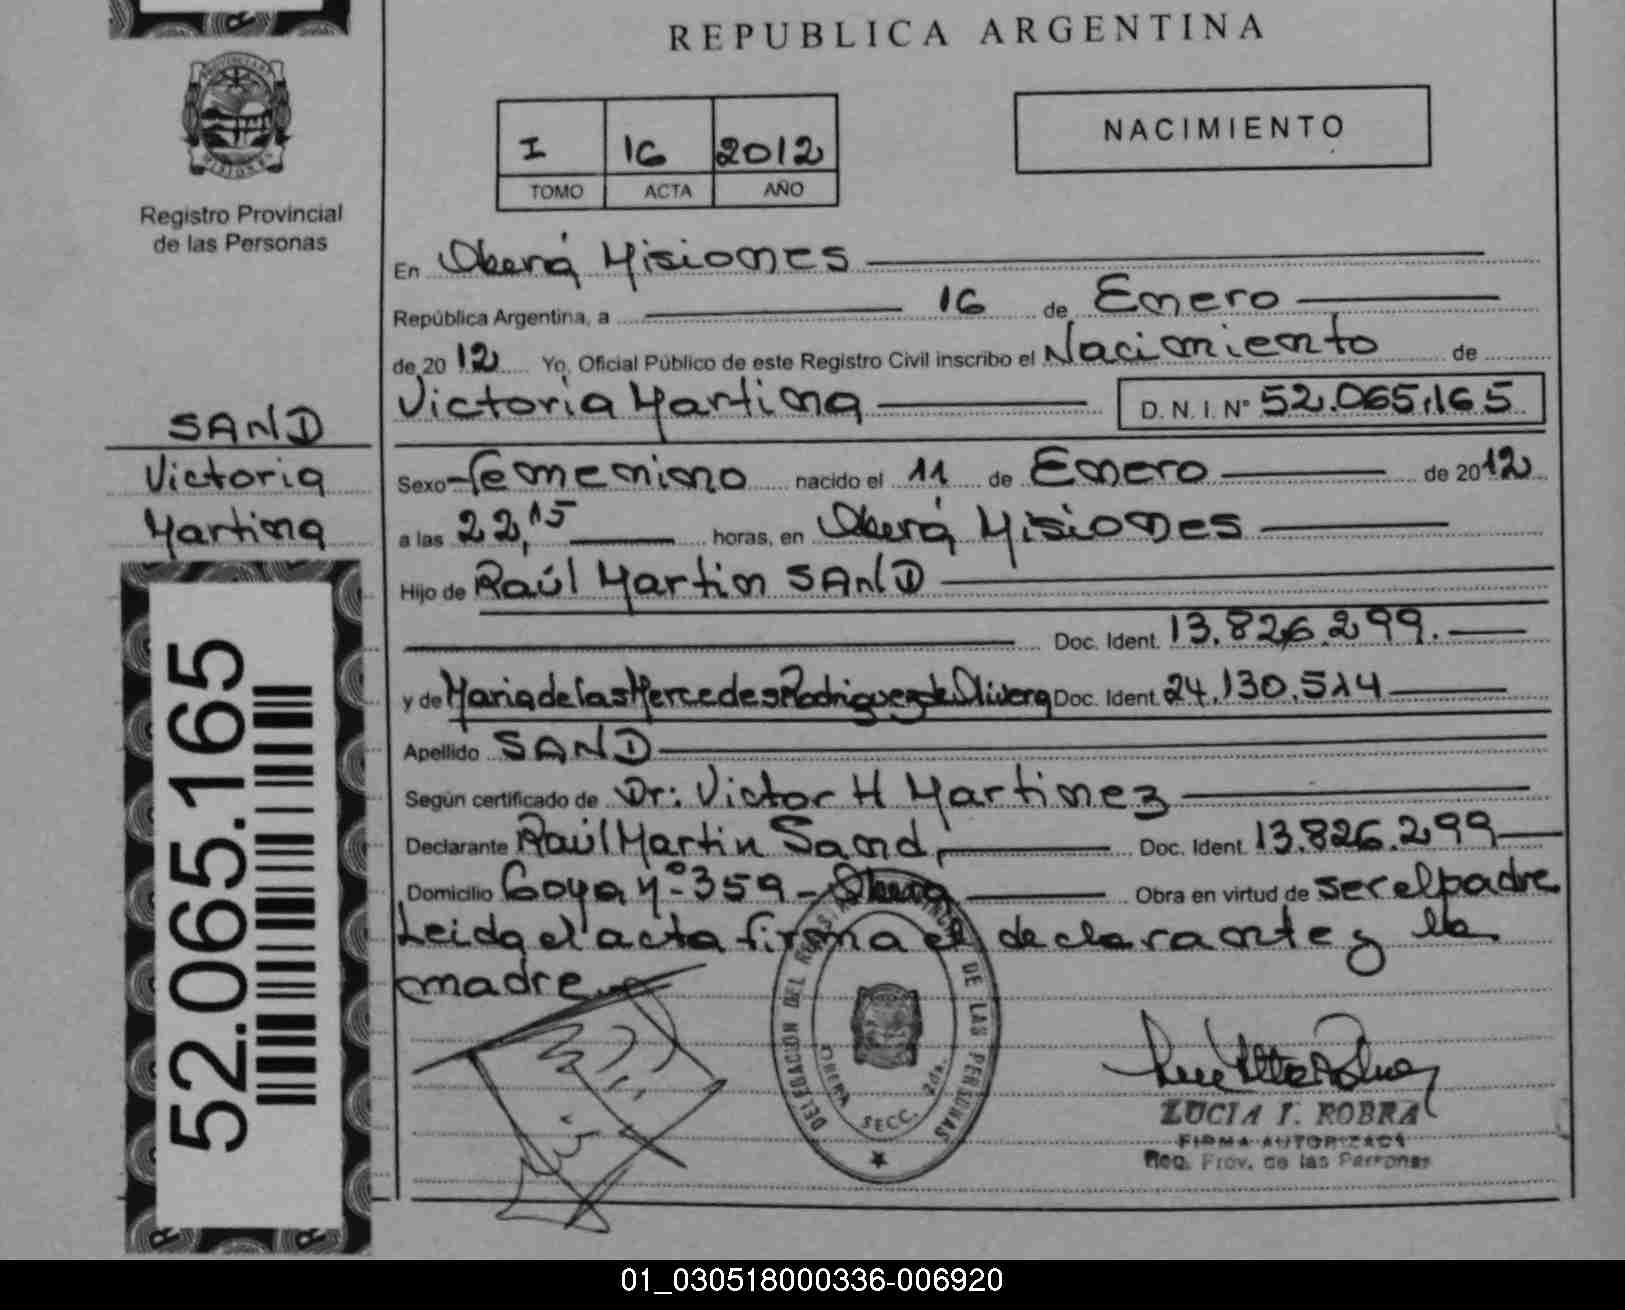 REPUBLICA ARGENTINA
I 16 2012
TOMO ACTA AÑO
NACIMIENTO
Registro Provincial
de las Personas
SAND
Victoria
Martina
52.065.165
En Oberá Misiones
República Argentina, a 16 de Enero
de 2012 Yo, Oficial Público de este Registro Civil inscribo el Nacimiento de
Victoria Martina D.N.I. Nº 52.065.165
Sexo Femenino nacido el 11 de Enero de 2012
a las 22,15 horas, en Oberá Misiones
Hijo de Raúl Martin SAND
Doc. Ident. 13.826.299.
y de Maria de las Mercedes Rodriguez de Olivera Doc. Ident. 24.130.514
Apellido SAND
Según certificado de Dr: Victor H Martinez
Declarante Raúl Martin Sand, Doc. Ident. 13.826.299
Domicilio Goya Nº 359 - Oberá Obra en virtud de ser el padre
Leida el acta firma el declarante y la
madre
DELEGACION DEL DE LAS PERSONAS
OBERA SECC. 2da.
LUCIA I. ROBRA
FIRMA AUTORIZADA
Reg. Prov. de las Personas
01_030518000336-006920